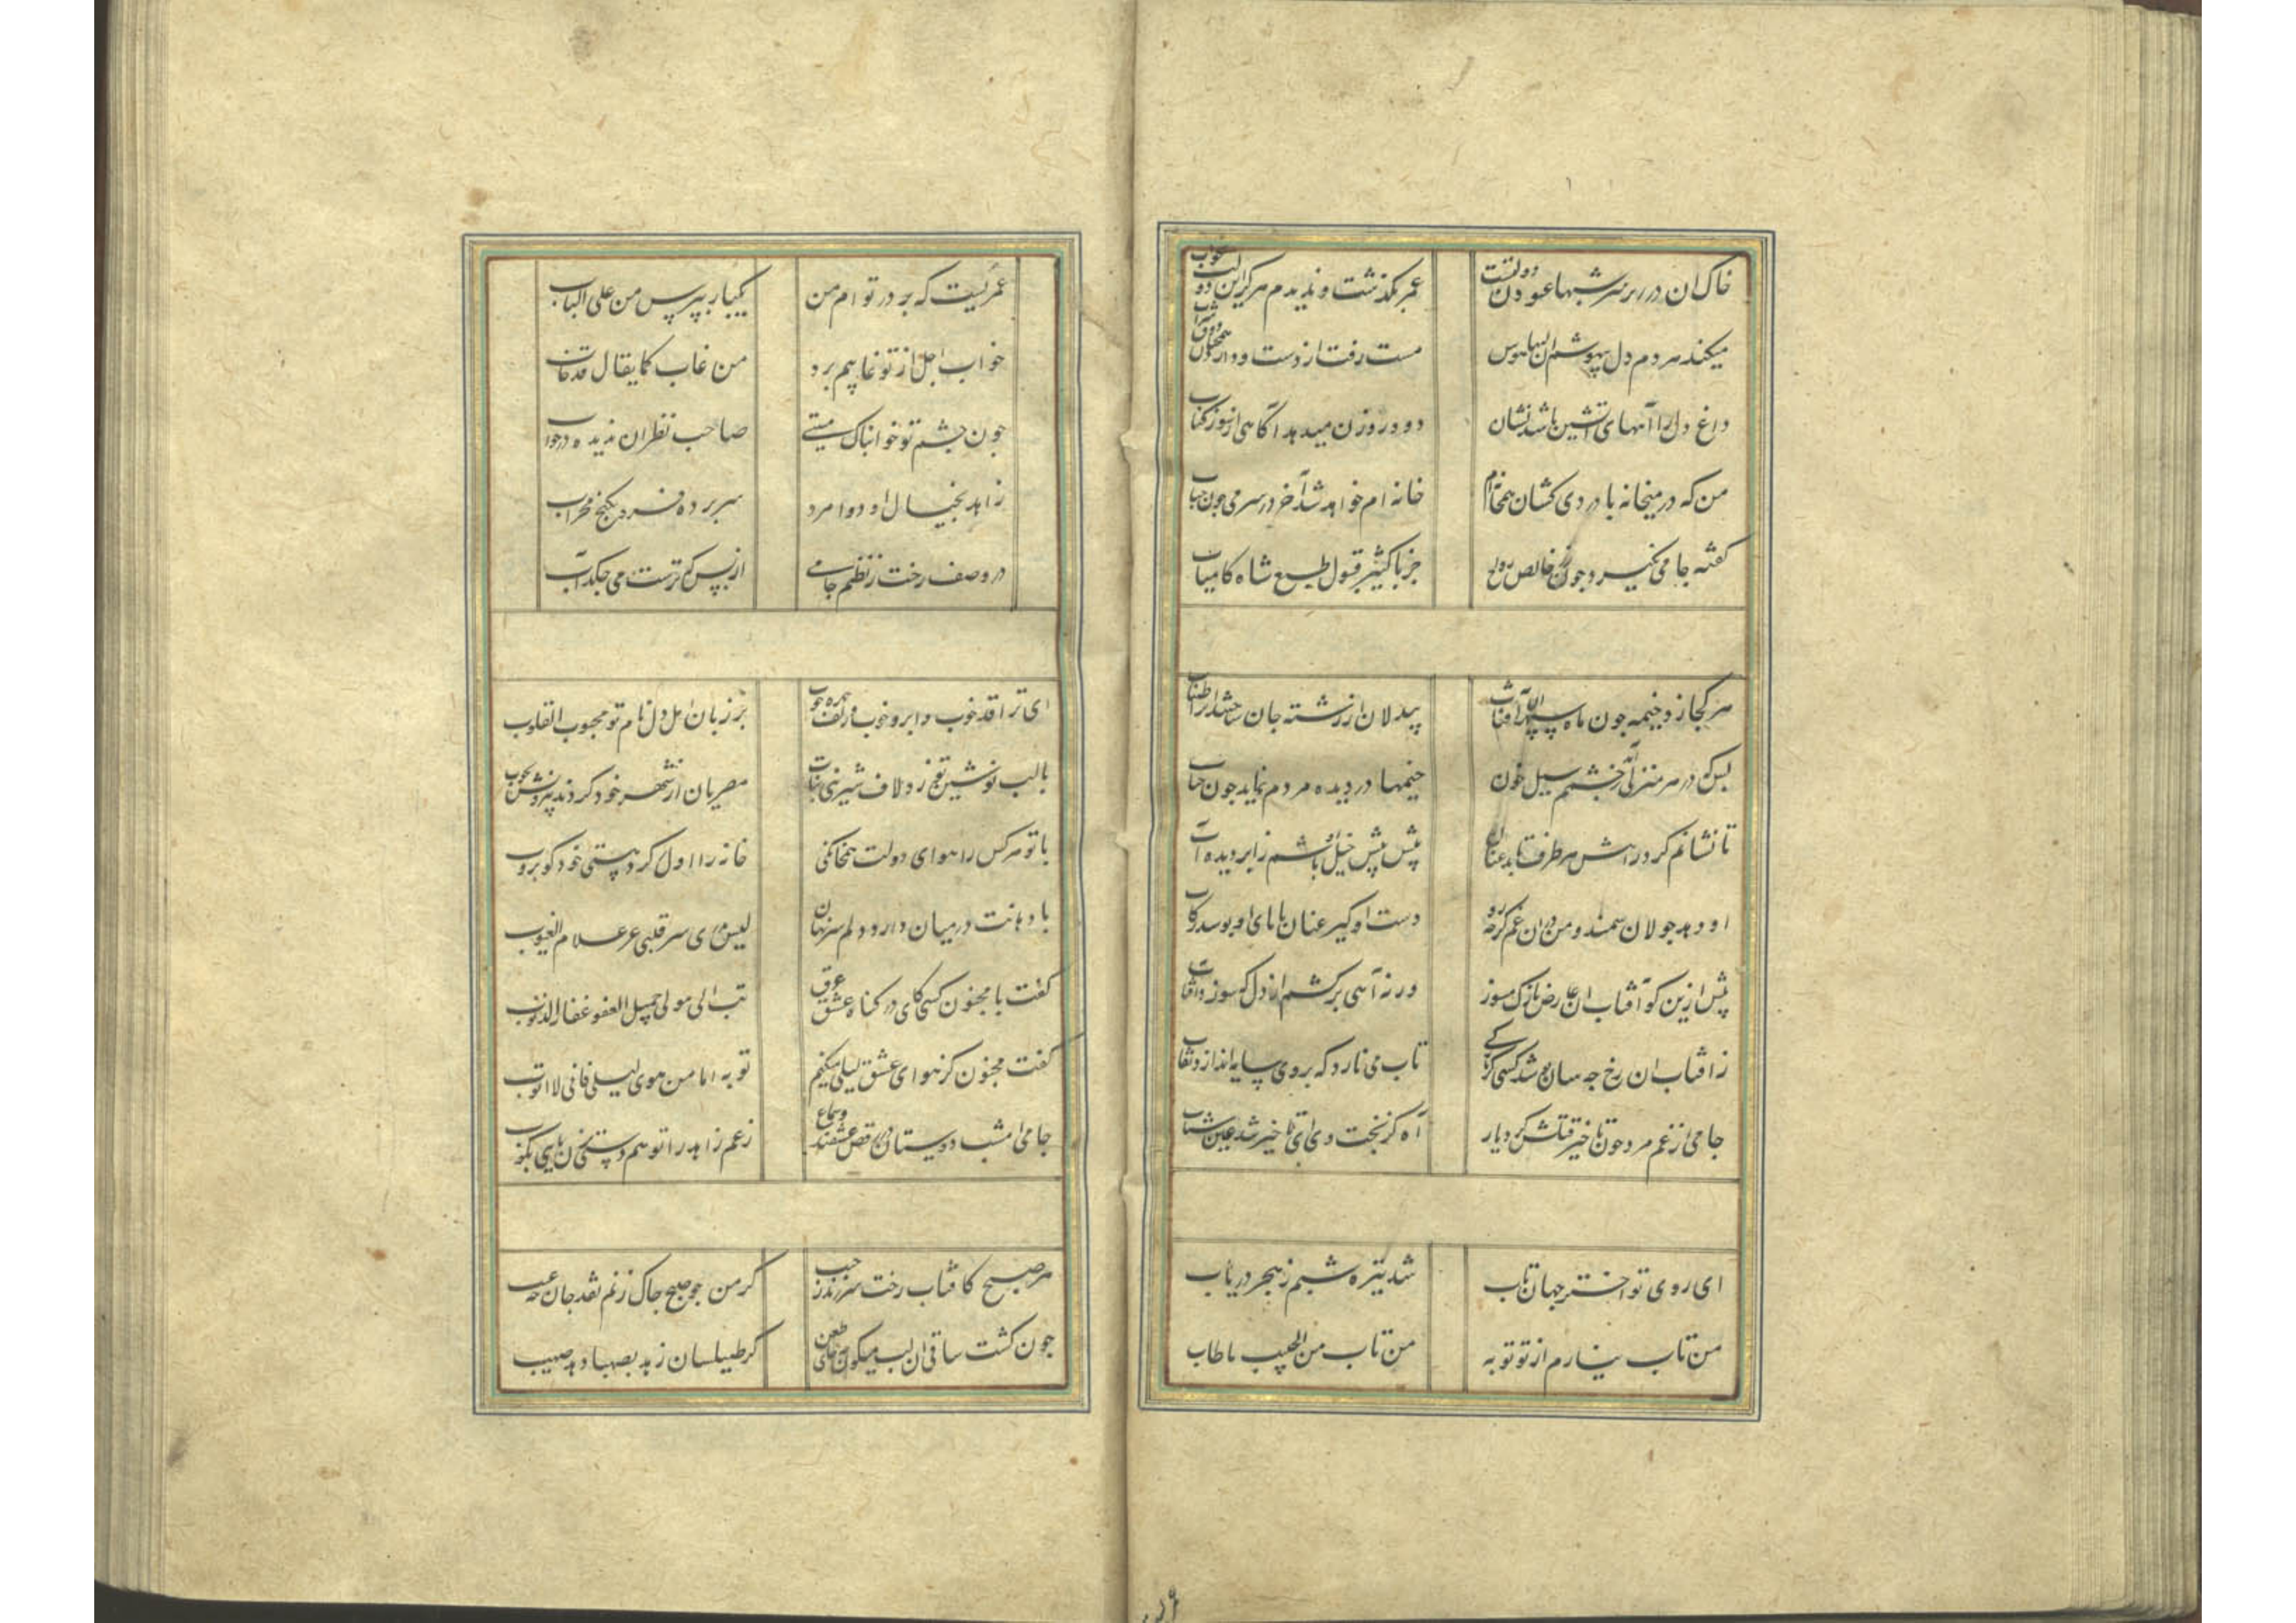 خاک ان در زیر سر شبها غنودن دولتست
عمر بگذشت و ندیدم هرگز این دولت بخواب
میکند هر دم دل بیهوشم ان لبها هوس
مست رفت از دست و دارد همچنان ذوق شراب
داغ دل را آههای آتشین باشد نشان
دود روزن میدهد آگاهی از سوز کباب
من که در میخانه با دردی کشان همخانه ام
خانه ام خواهد شد آخر در سر می چون حباب
گفته جامی نگیرد چون زر خالص رواج
جز باکسیر قبول طبع شاه کامیاب
هر کجا زد خیمه چون ماه سپهر آن آفتاب
بیدلان از رشته جان ساختندش را طناب
بس که در هر منزلی راند ز چشمم سیل خون
خیمها در دیده مردم نماید چون حباب
تا نشانم گرد راهش هر طرف تابد عنان
پیش پیش خیل او باشم ز ابر دیده آب
او دهد جولان سمند و من در ان غم کز چه رو
دست او گیرد عنان یا پای او بوسد رکاب
پیش ازین گو آفتاب ان عارض نازک مسوز
ورنه آهی برکشم از دل که سوزد آفتاب
ز افتاب ان رخ چه سان پوشد کسی کز نازکی
تاب می نارد که بر وی سایه اندازد نقاب
جامی از غم مرد چون تاخیر قتلش کرد یار
آه کز بخت وی این تاخیر شد عین شتاب
ای روی تو اختر جهان تاب
شد تیره شبم ز هجر دریاب
من تاب نیارم از تو توبه
من تاب من الحبیب ما طاب
عمریست که بر در توام من
یکبار بپرس من علی الباب
خواب اجل از تو غایبم برد
من غاب کما یقال قد خاب
چون چشم تو خوابناک مستی
صاحب نظران ندیده در خواب
زاهد بخیال او دوا مرد
سر برده فرو بکنج محراب
در وصف رخت ز نظم جامی
از بس که ترست می چکد آب
ای ترا قد خوب و ابرو خوب و زلف و چهره خوب
بر زبان اهل دل نام تو محبوب القلوب
با لب نوشین تو چون زد لاف شیرینی نبات
مصریان از شهر خود کردند بیرونش بچوب
با تو هر کس را هوای دولت همخانگی
خانه را اول ز گرد هستی خود گو بروب
با دهانت در میان دارد دلم سر نهان
لیس یدری سر قلبی غیر علام الغیوب
گفت با مجنون کسی کای در گناه عشق غرق
تب الی مولی جمیل العفو غفار الذنوب
گفت مجنون کز هوای عشق لیلی میکنم
توبه اما من هوی لیلی فانی لا اتوب
جامی امشب دوستان در رقص عشقند و سماع
زعم زاهد را تو هم دستی بزن پایی بکوب
هر صبح کافتاب رخت سر زند ز جیب
گر من چو صبح چاک زنم نقد جان چه عیب
چون گشت ساقی ان لب میگون چه جای طعن
گر طیلسان زهد بصهبا دهد صهیب